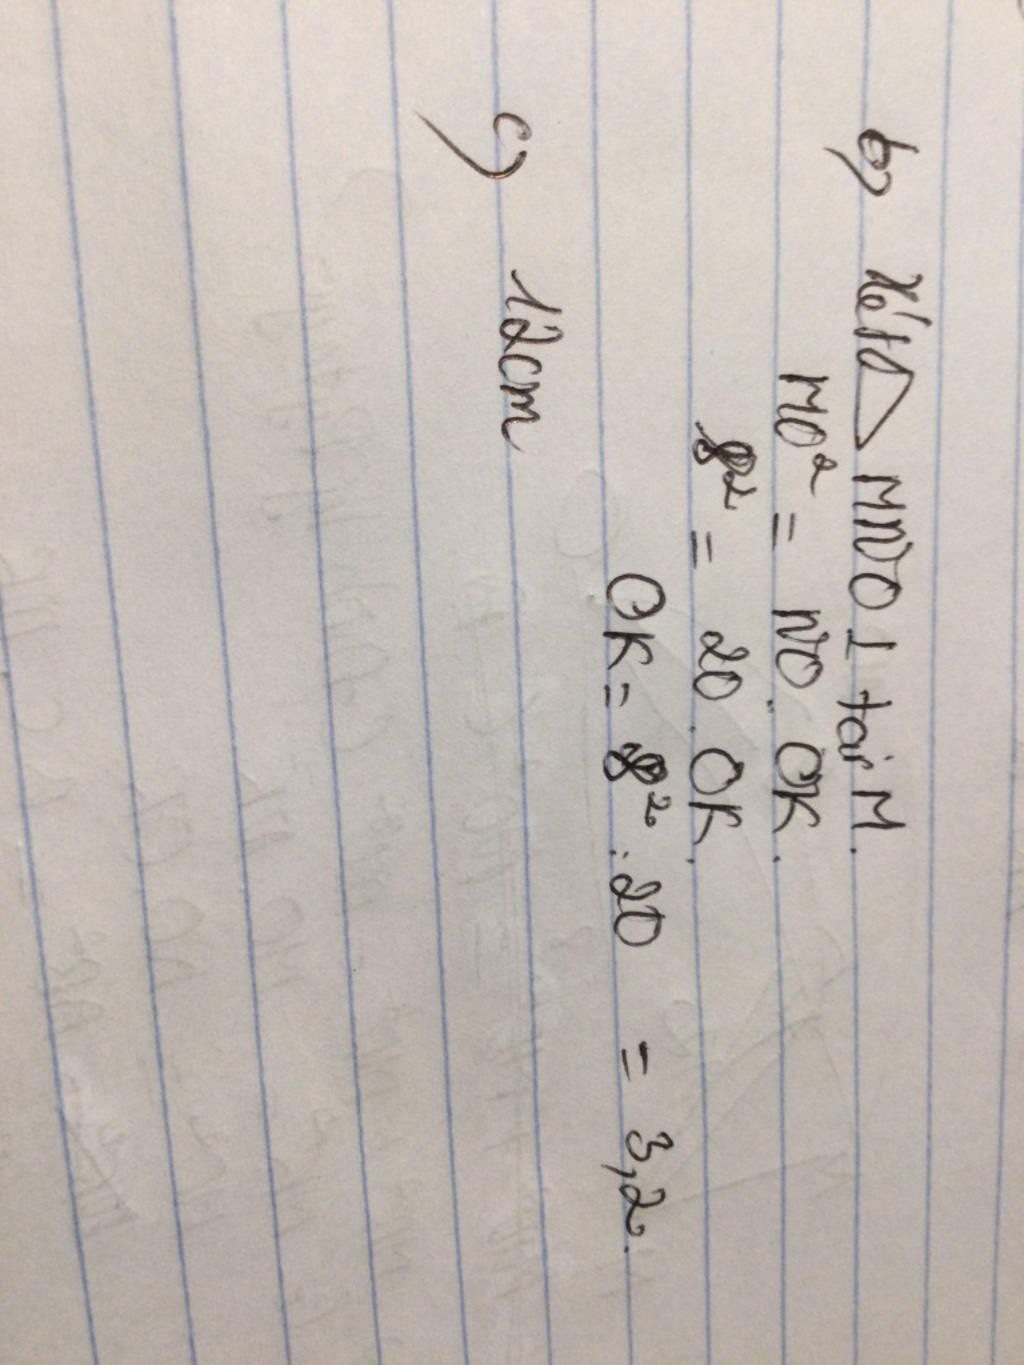 b) Xét △ MNO ⊥ tại M.
MO² = NO . OK.
8² = 20 . OK.
OK = 8² : 20 = 3,2.
c) 12cm